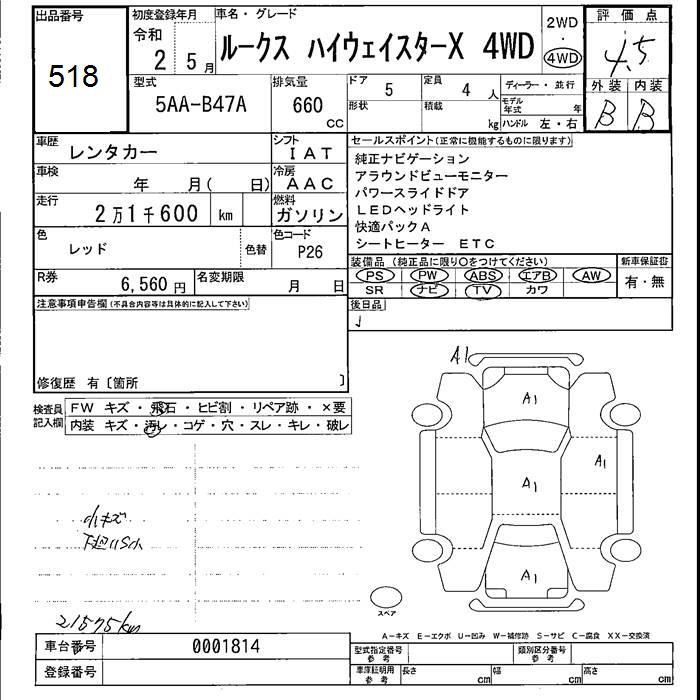 出品番号
518
初度登録年月
令和
2 5月
車名・グレード
ルークス ハイウェイスターX 4WD
2WD
・
4WD
評価点
4.5
外装 内装
B B
型式
5AA-B47A
排気量
660
cc
ドア 5
形状
定員 4 人
積載 kg
ディーラー・並行
モデル年式 年
ハンドル 左・右
車歴 レンタカー
シフト IAT
車検 年 月( 日)
冷房 AAC
走行 2万1千600 km
燃料 ガソリン
色 レッド
色替
色コード P26
R券 6,560円
名変期限 月 日
セールスポイント(正常に機能するものに限ります)
純正ナビゲーション
アラウンドビューモニター
パワースライドドア
LEDヘッドライト
快適パックA
シートヒーター ETC
装備品(純正品に限り○をつけてください)
PS PW ABS エアB AW
SR ナビ TV カワ
新車保証書
有・無
後日品
注意事項申告欄(不具合内容等は具体的に記入して下さい)
修復歴 有〔箇所 〕
検査員記入欄
FW キズ・飛石・ヒビ割・リペア跡・×要
内装 キズ・汚レ・コゲ・穴・スレ・キレ・破レ
小キズ
21575km
A1
A1
A1
A1
A1
スペア
A-キズ E-エクボ U-凹み W-補修跡 S-サビ C-腐食 XX-交換済
車台番号 0001814
登録番号
型式指定番号 参考
類別区分番号 参考
車庫証明用 参考
長さ cm 幅 cm 高さ cm